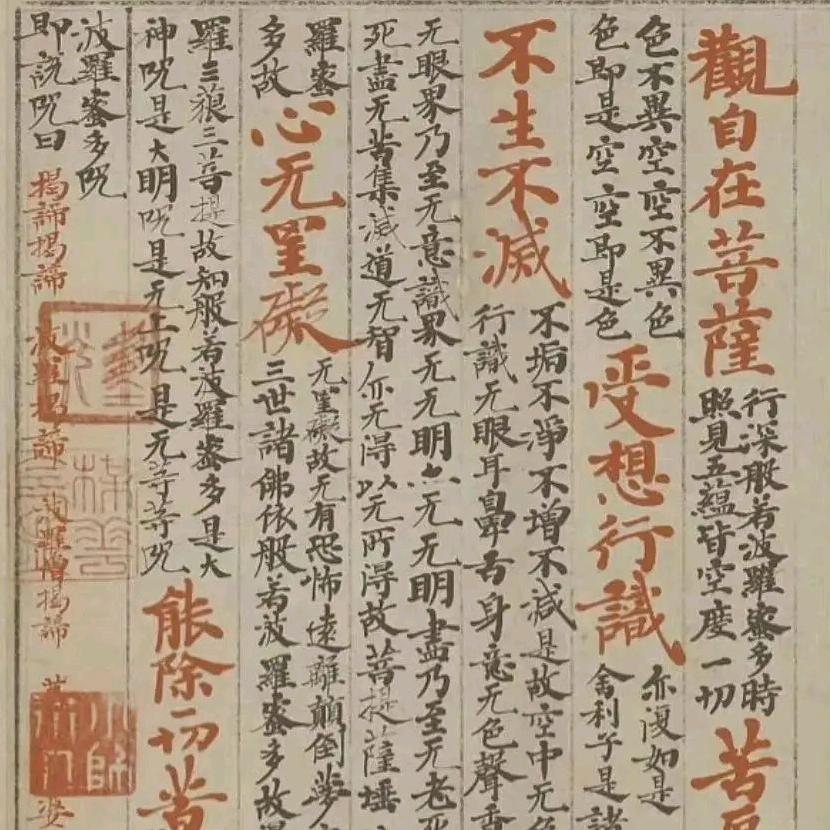 觀自在菩薩
行深般若波羅蜜多時
照見五蘊皆空度一切
苦
色不異空空不異色
色即是空空即是色
受想行識
亦復如是
舍利子是諸
不生不滅
不垢不淨不增不減是故空中无色
行識无眼耳鼻舌身意无色聲香
无眼界乃至无意識界无无明亦无无明盡乃至无老死
死盡无苦集滅道无智亦无得以无所得故菩提薩埵
羅蜜
多故
心无罣礙
无罣礙故无有恐怖遠離顛倒夢
三世諸佛依般若波羅蜜多故
羅三藐三菩提故知般若波羅蜜多是大
神呪是大明呪是无上呪是无等等呪
能除一切苦
波羅蜜多呪
即說呪曰
揭諦揭諦 波羅揭諦 波羅僧揭諦